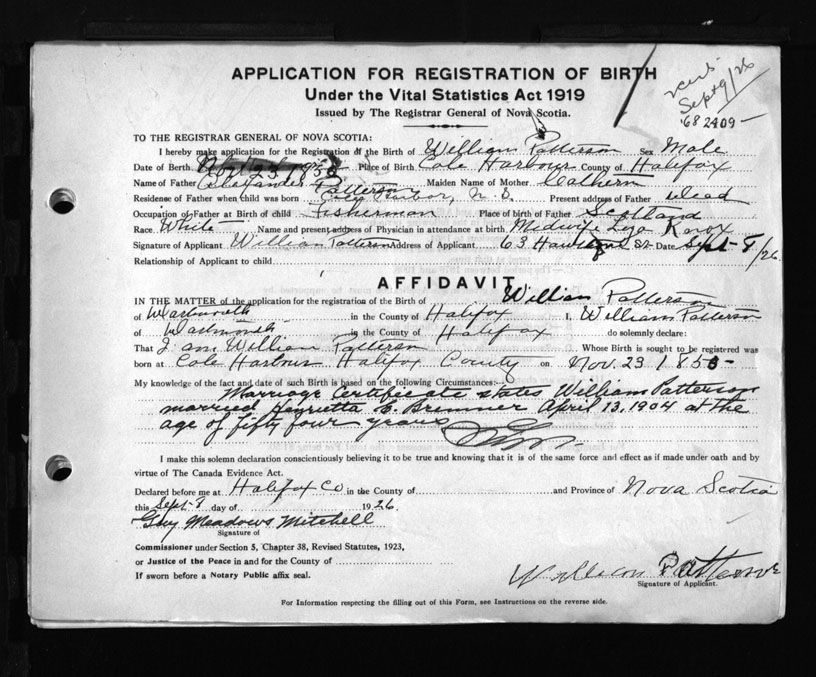 APPLICATION FOR REGISTRATION OF BIRTH
Under the Vital Statistics Act 1919
Issued by The Registrar General of Nova Scotia.
Sept 9/26
682409-
TO THE REGISTRAR GENERAL OF NOVA SCOTIA:
I hereby make application for the Registration of the Birth of William Patterson Sex Male
Date of Birth Place of Birth Cole Harbour County of Halifax
Name of Father Alexander Patterson Maiden Name of Mother Cathern
Residence of Father when child was born Cole Harbor, N.S. Present address of Father Dead
Occupation of Father at Birth of child Fisherman Place of birth of Father Scotland
Race White Name and present address of Physician in attendance at birth Midwife Knox
Signature of Applicant William Patterson Address of Applicant 63 St Date Sept 8/26
Relationship of Applicant to child
AFFIDAVIT
IN THE MATTER of the application for the registration of the Birth of William Patterson
of Dartmouth in the County of Halifax I, William Patterson
of Dartmouth in the County of Halifax do solemnly declare:
That I am William Patterson Whose Birth is sought to be registered was
born at Cole Harbour Halifax County on Nov. 23 1850-
My knowledge of the fact and date of such Birth is based on the following Circumstances:-
Marriage Certificate states William Patterson
married Henrietta Bremner April 13, 1904 at the
age of fifty four years
I make this solemn declaration conscientiously believing it to be true and knowing that it is of the same force and effect as if made under oath and by
virtue of The Canada Evidence Act.
Declared before me at Halifax Co in the County of and Province of Nova Scotia
this Sept 8 day of 1926.
Guy Meadows Mitchell
Signature of
Commissioner under Section 5, Chapter 38, Revised Statutes, 1923,
or Justice of the Peace in and for the County of
If sworn before a Notary Public affix seal.
William Patterson
Signature of Applicant.
For Information respecting the filling out of this Form, see Instructions on the reverse side.